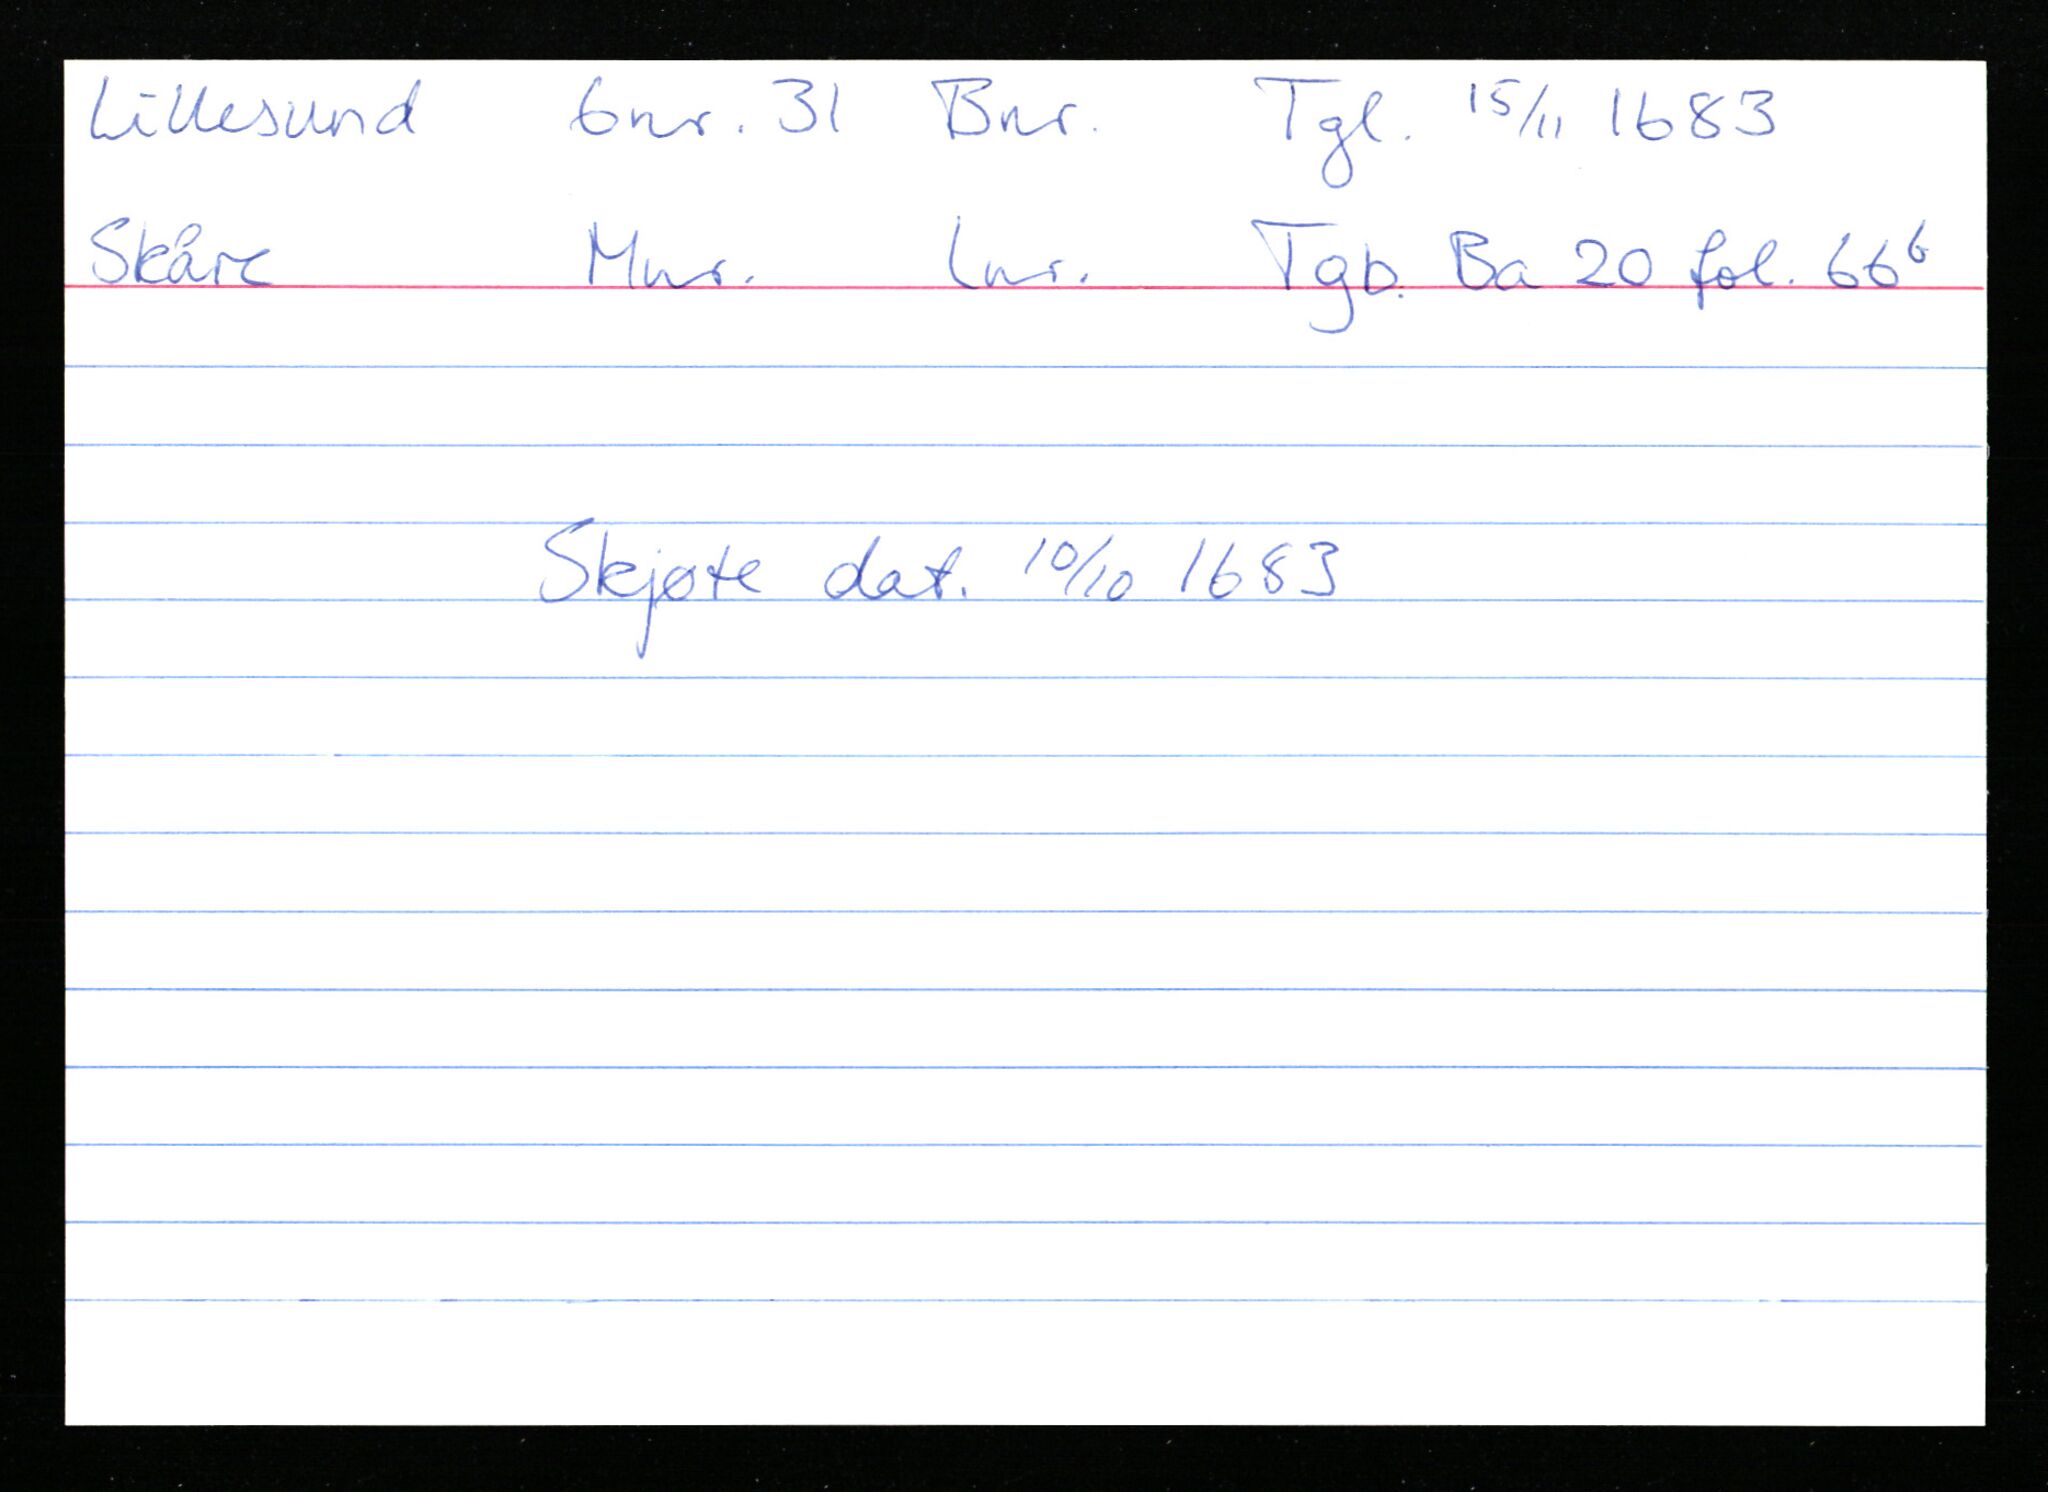 Lillesund Gnr. 31 Bnr. Tgl. 15/11 1683
Skåre Mnr. Lnr. Tgb. Ba 20 fol. 66b
Skjøte dat. 10/10 1683